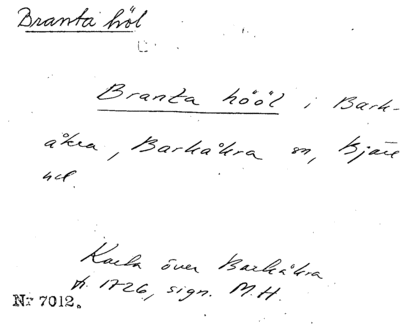 Branta höl
Branta hööl i Bark-
åkra, Barkåkra sn, Bjäre
hd.
Karta över Barkåkra
fr. 1726, sign. M.H.
Nr 7012.